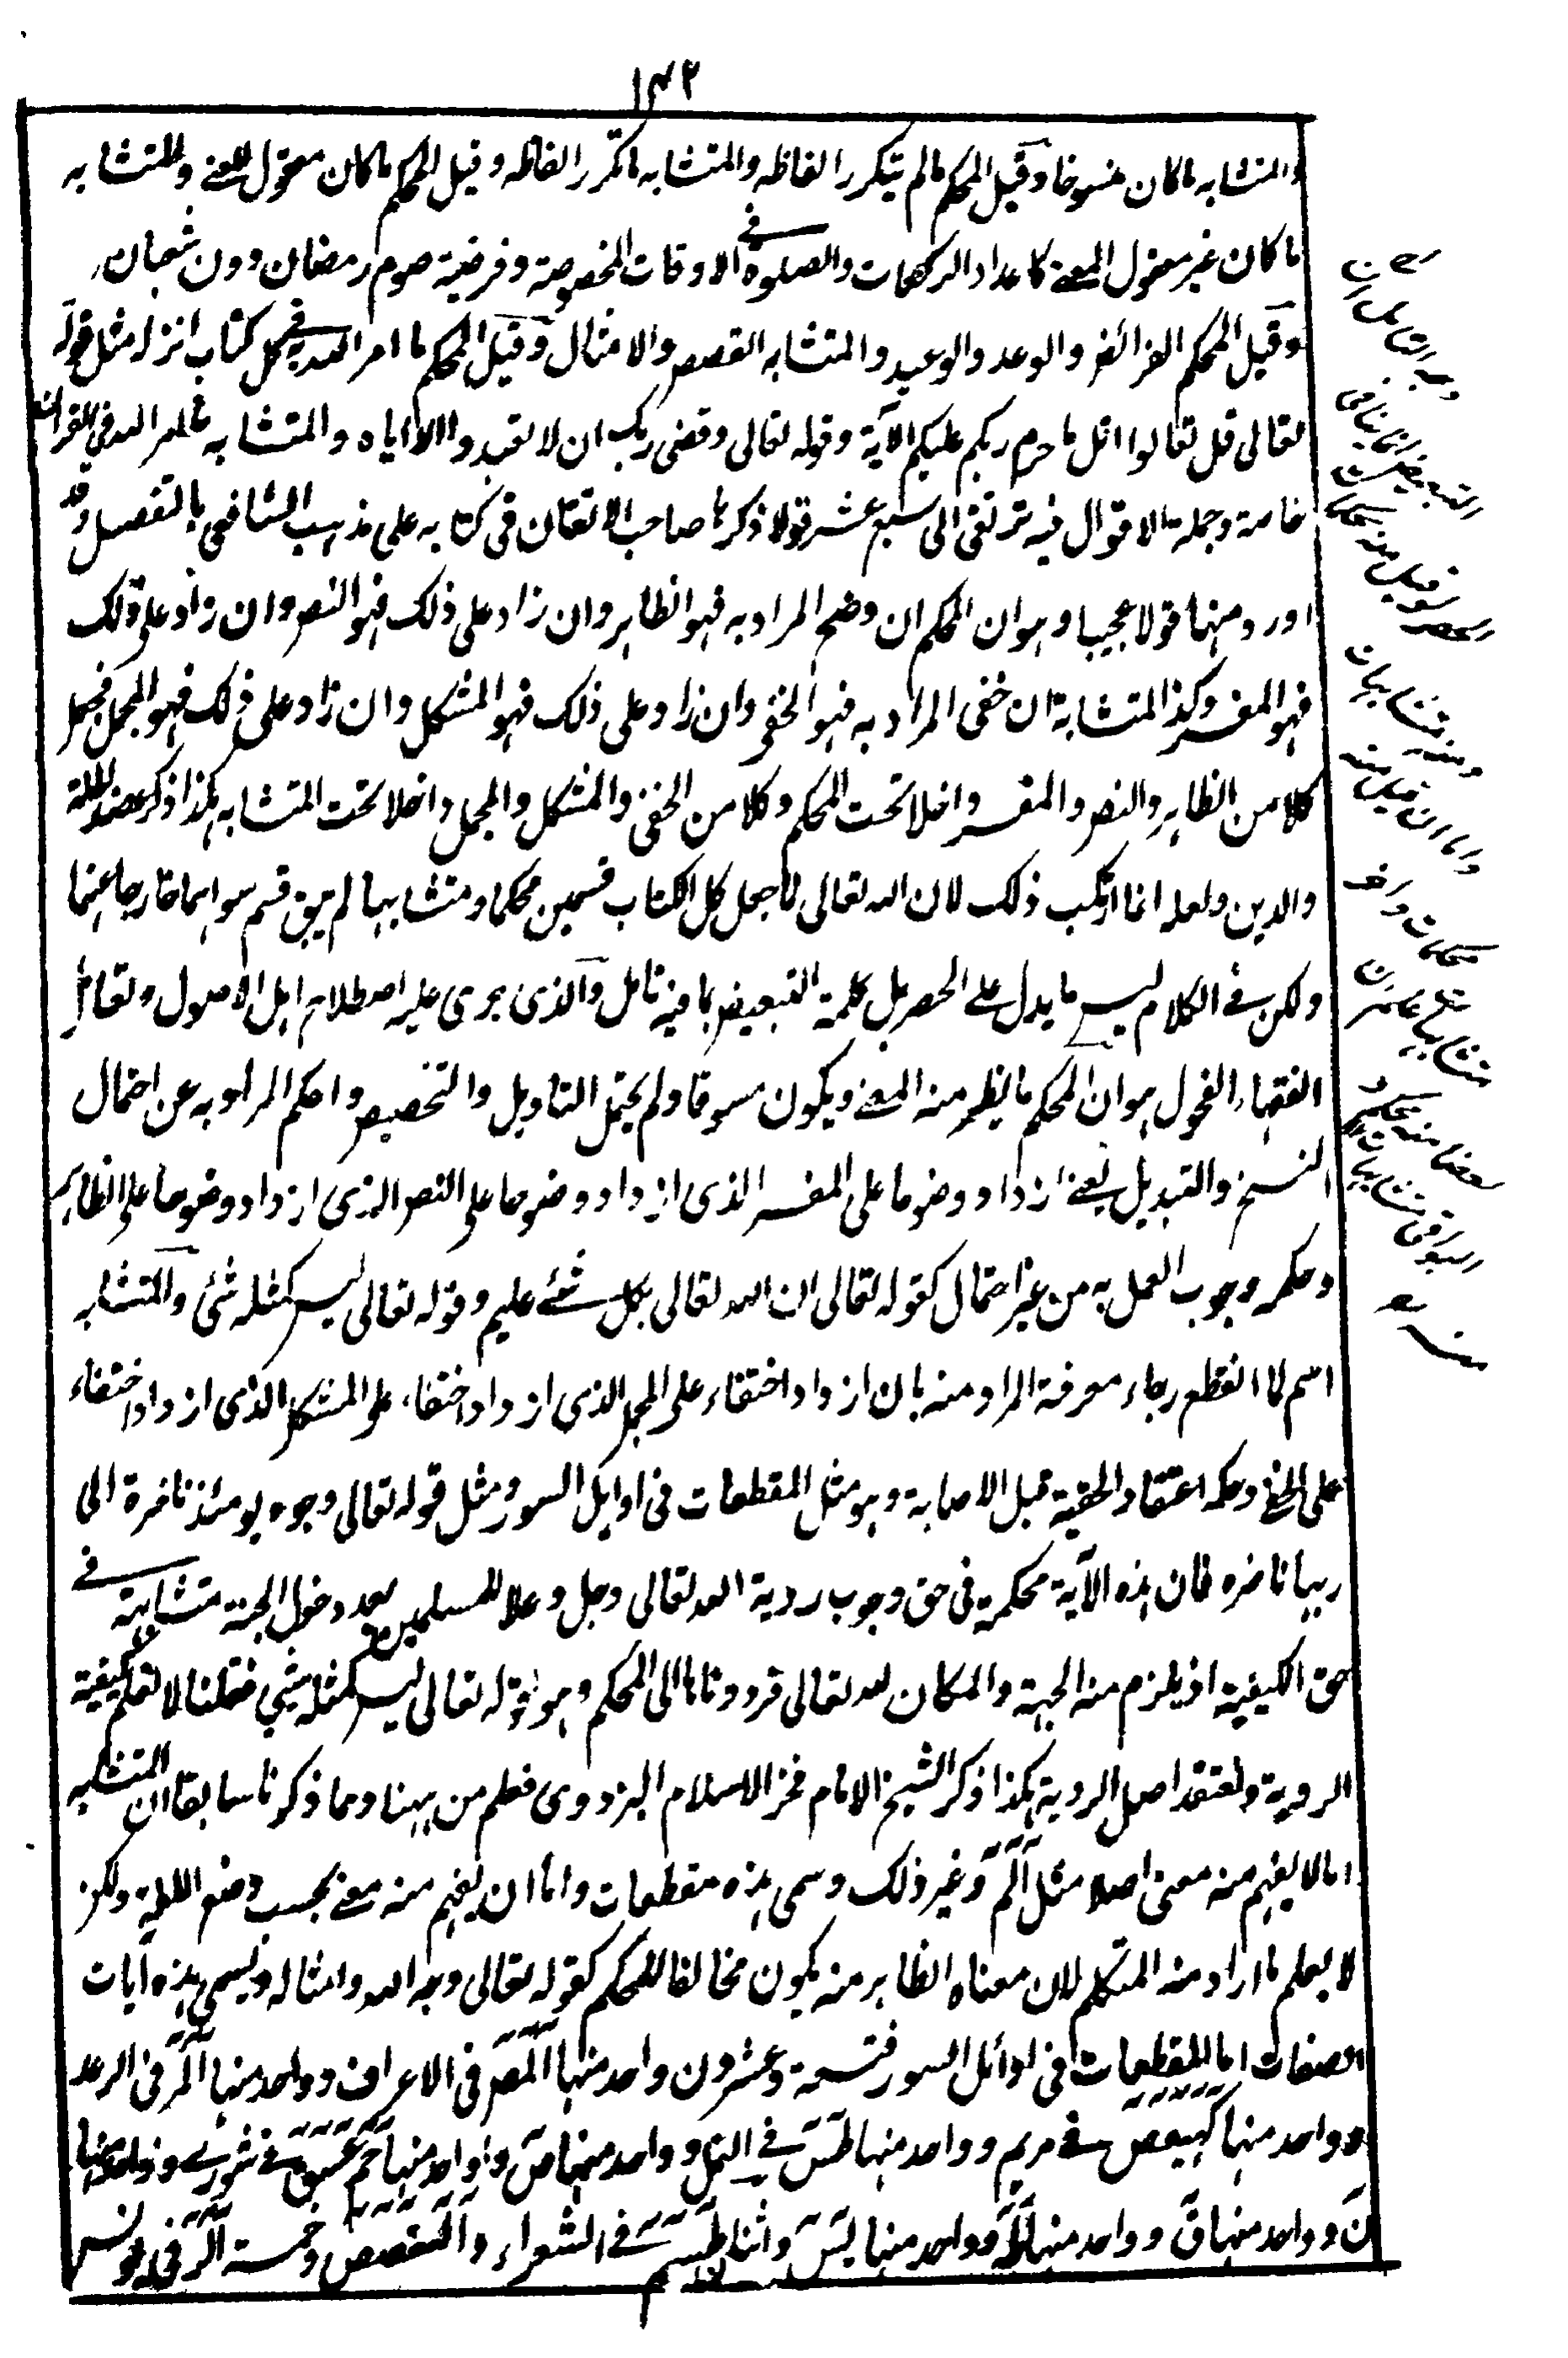 ١٤٢
والمتشابه ما كان منسوخا وقيل المحكم ما لم يتكرر الفاظه والمتشابه ما تكرر الفاظه وقيل المحكم ما كان معقول المعنى والمتشابه
ما كان غير معقول المعنى كاعداد الركعات والصلوة في الاوقات المخصوصة وفرضية صوم رمضان دون شعبان
وقيل المحكم الفرائض والوعد والوعيد والمتشابه القصص والامثال وقيل المحكم ما امر الله به في كل كتاب انزله مثل قوله
تعالى قل تعالوا اتل ما حرم ربكم عليكم الآية وقوله تعالى وقضى ربك ان لا تعبدوا الا اياه والمتشابه علمه الله في القرآن
خاصة وجملة الاقوال فيه ترتقى الى سبع عشر قولا ذكرها صاحب الاتقان في كتابه على مذهب الشافعي بالتفصيل وقد
اورد منها قولا عجيبا وهو ان المحكم ان وضح المراد به فهو الظاهر وان زاد على ذلك فهو النص وان زاد على ذلك
فهو المفسر وكذا المتشابه ان خفى المراد به فهو الخفي وان زاد على ذلك فهو المشكل وان زاد على ذلك فهو المجمل فجعل
كلا من الظاهر والنص والمفسر داخلا تحت المحكم وكلا من الخفى والمشكل والمجمل داخلا تحت المتشابه هكذا ذكر عضد الملة
والدين ولعله انما ارتكب ذلك لان الله تعالى لما جعل كل الكتاب قسمين محكما ومتشابها لم يبق قسم سواهما خارجا عنهما
ولكن في الكلام ليس ما يدل على الحصر بل كلمة التبعيض بما فيه تامل والذى جرى عليه اصطلاح اهل الاصول وتعامل
الفقهاء الفحول هو ان المحكم ما يظهر منه المعنى ويكون مسوقا ولم يحتمل التاويل والتخصيص واحكم المراد به عن احتمال
النسخ والتبديل يعنى ازداد وضوحا على المفسر الذى ازداد وضوحا على النص الذى ازداد وضوحا على الظاهر
وحكمه وجوب العمل به من غير احتمال كقوله تعالى ان الله تعالى بكل شئ عليم وقوله تعالى ليس كمثله شئ والمتشابه
اسم لما انقطع رجاء معرفة المراد منه بان ازداد اختفاء على المجمل الذى ازداد اختفاء على المشكل الذى ازداد اختفاء
على الخفى وحكمه اعتقاد الحقية قبل الاصابة وهو مثل المقطعات في اوايل السور ومثل قوله تعالى وجوه يومئذ ناضرة الى
ربها ناظره فان هذه الآية محكمة في حق وجوب روية الله تعالى وجل وعلا للمسلمين بعد دخول الجنة متشابهة في
حق الكيفية اذ يلزم منه الجهة والمكان لله تعالى فرددناها الى المحكم وهو قوله تعالى ليس كمثله شئ فقلنا لا نعلم كيفية
الروية ونعتقد اصل الروية هكذا ذكر الشيخ الامام فخر الاسلام البزدوى فعلم من ههنا ومما ذكرنا سابقا ان المتشابه
اما لا يفهم منه معنى اصلا مثل الم وغير ذلك وسمى هذه مقطعات واما ان يفهم منه معنى بحسب وضع اللغة ولكن
لا يعلم ما اراد منه المتكلم لان معناه الظاهر منه يكون مخالفا للمحكم كقوله تعالى وجه الله وامثاله ويسمى هذه آيات
الصفات اما المقطعات في اوائل السور فتسعة وعشرون واحد منها المص في الاعراف وواحد منها المر في الرعد
وواحد منها كهيعص في مريم وواحد منها طس في النمل وواحد منها ص وواحد منها حم عسق في شورى وواحد منها
ن وواحد منها ق وواحد منها طه وواحد منها يس واثنا طسم في الشعراء والقصص وخمسة الر في يونس